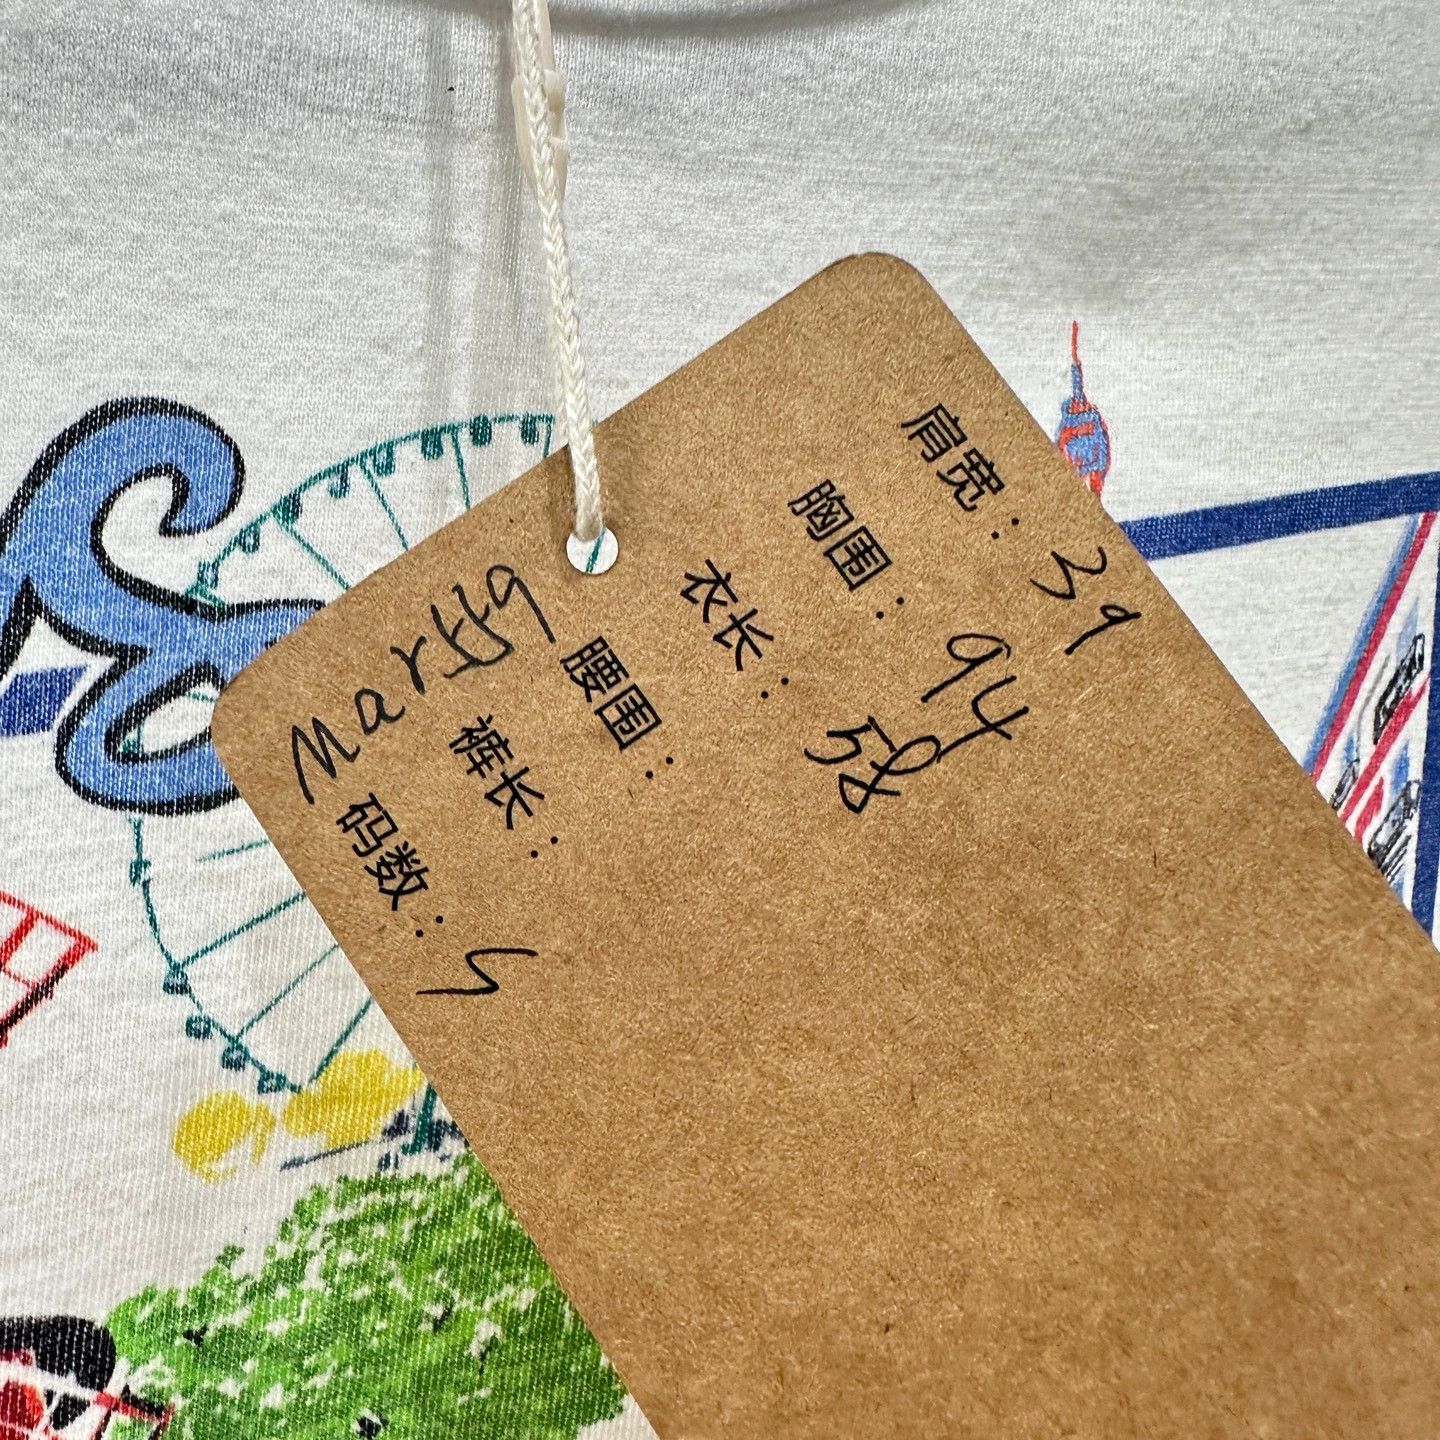 肩宽：39
胸围：94
衣长：58
腰围：
裤长：
码数：S